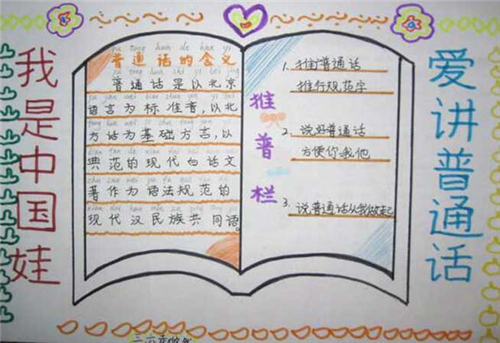 我是中国娃
pu tong hua de han yi
普通话的含义
普通话是以北京
语言为标准音,以北
方话为基础方言,以
典范的现代白话文
著作为语法规范的
现代汉民族共同语
推普栏
1. 推广普通话
推行规范字
2. 说好普通话
方便你我他
3. 说普通话从我做起
爱讲普通话